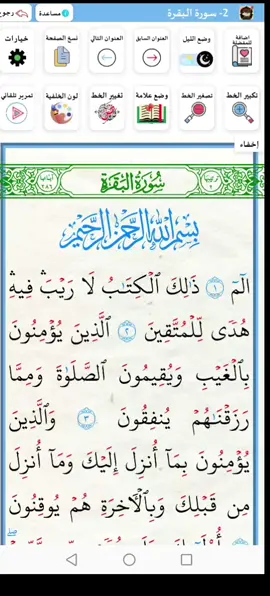 رجوع
مساعدة
2- سورة البقرة
اضافة للمفضلة
وضع الليل
العنوان السابق
العنوان التالي
نسخ الصفحة
خيارات
تكبير الخط
تصغير الخط
وضع علامة
تغيير الخط
لون الخلفية
تمرير تلقائي
إخفاء
سُورَةُ البَقَرَة
بِسْمِ اللَّهِ الرَّحْمَنِ الرَّحِيمِ
الٓمٓ ١ ذَٰلِكَ ٱلْكِتَٰبُ لَا رَيْبَ ۛ فِيهِ ۛ
هُدًى لِّلْمُتَّقِينَ ٢ ٱلَّذِينَ يُؤْمِنُونَ
بِٱلْغَيْبِ وَيُقِيمُونَ ٱلصَّلَوٰةَ وَمِمَّا
رَزَقْنَٰهُمْ يُنفِقُونَ ٣ وَٱلَّذِينَ
يُؤْمِنُونَ بِمَآ أُنزِلَ إِلَيْكَ وَمَآ أُنزِلَ
مِن قَبْلِكَ وَبِٱلْءَاخِرَةِ هُمْ يُوقِنُونَ